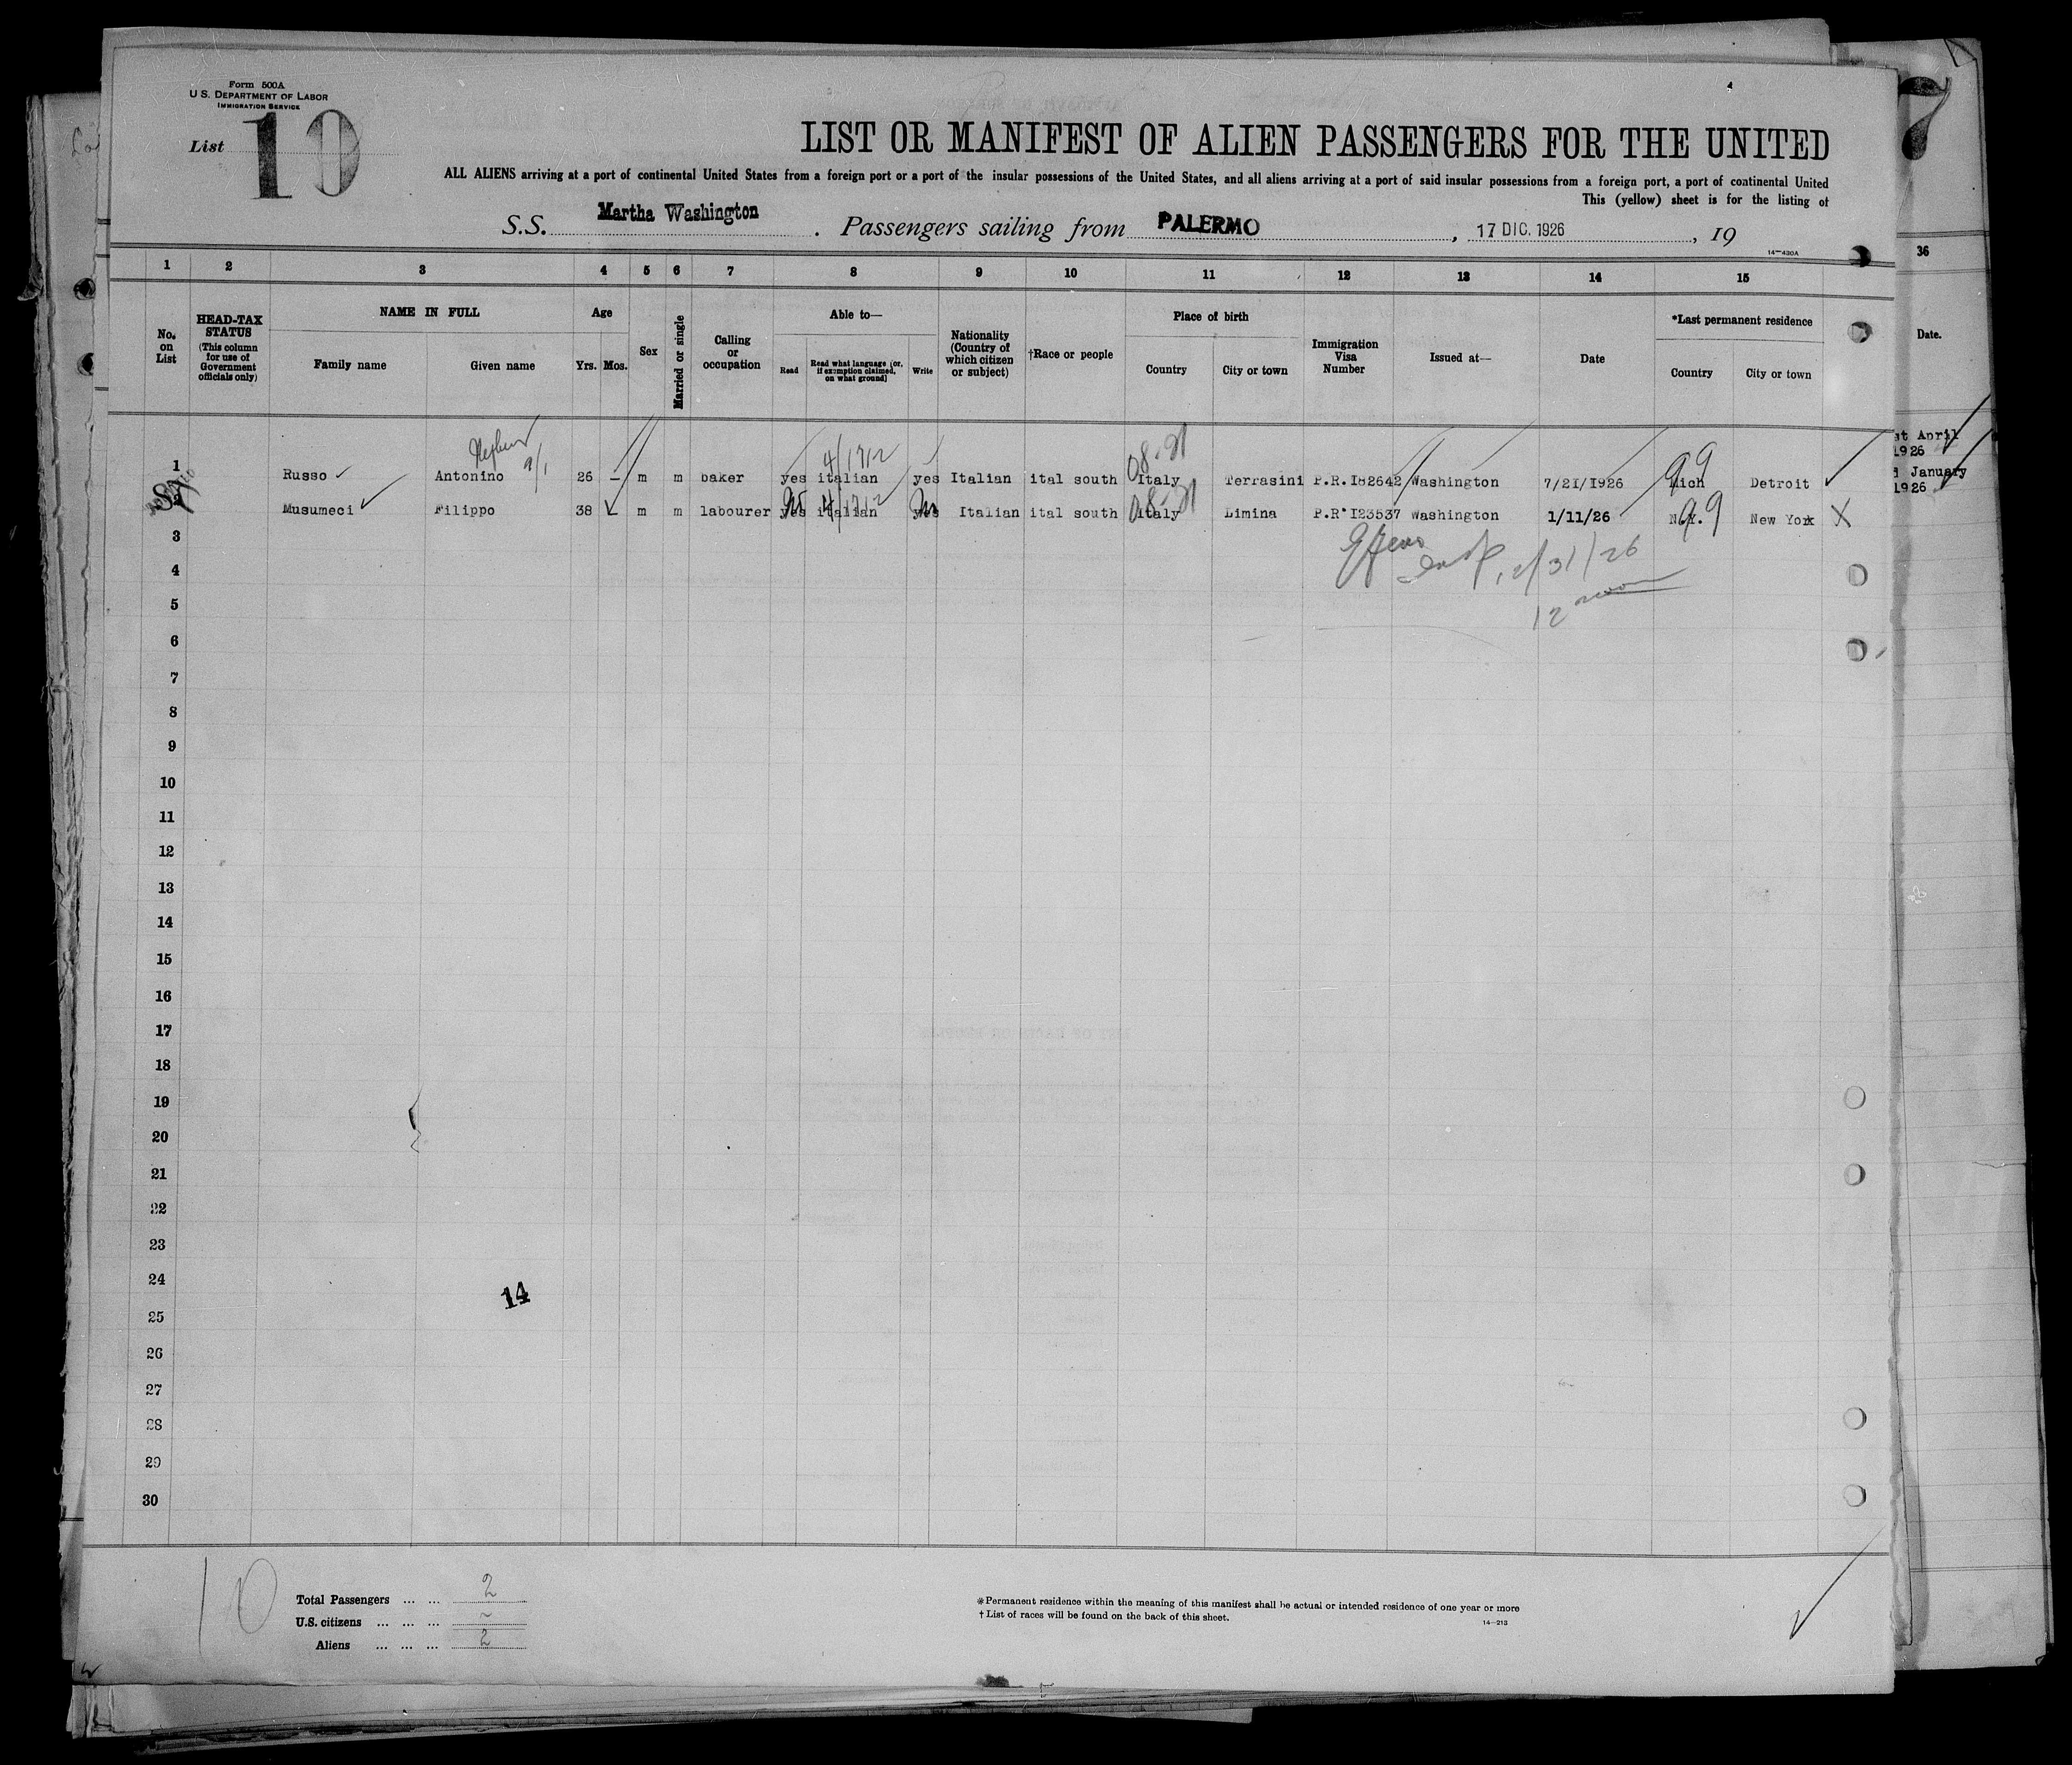 Form 500A
U.S. DEPARTMENT OF LABOR
IMMIGRATION SERVICE
List 10
7
LIST OR MANIFEST OF ALIEN PASSENGERS FOR THE UNITED
ALL ALIENS arriving at a port of continental United States from a foreign port or a port of the insular possessions of the United States, and all aliens arriving at a port of said insular possessions from a foreign port, a port of continental United
This (yellow) sheet is for the listing of
S.S. Martha Washington . Passengers sailing from PALERMO , 17 DIC. 1926 , 19
14—430A
1 2 3 4 5 6 7 8 9 10 11 12 13 14 15 36
No. on List
HEAD-TAX STATUS (This column for use of Government officials only)
NAME IN FULL
Family name
Given name
Age
Yrs. Mos.
Sex
Married or single
Calling or occupation
Able to—
Read
Read what language (or, if exemption claimed, on what ground)
Write
Nationality (Country of which citizen or subject)
†Race or people
Place of birth
Country
City or town
Immigration Visa Number
Issued at—
Date
*Last permanent residence
Country
City or town
Date.
4/1712 08-
1 Russo Antonino 26 — m m baker yes italian yes Italian ital south Italy Terrasini P.R.I82642 Washington 7/21/1926 Mich 99 Detroit
st April 1926
January 1926
2 Musumeci Filippo 38 m m labourer yes italian yes Italian ital south Italy Limina P.R I23537 Washington 1/11/26 N.Y. 99 New York X
12/31/26
12 noon
3
4
5
6
7
8
9
10
11
12
13
14
15
16
17
18
19
20
21
22
23
24
14
25
26
27
28
29
30
10
Total Passengers ... ... 2
U.S. citizens ... ... ... ~
Aliens ... ... ... 2
*Permanent residence within the meaning of this manifest shall be actual or intended residence of one year or more
†List of races will be found on the back of this sheet.
14—213